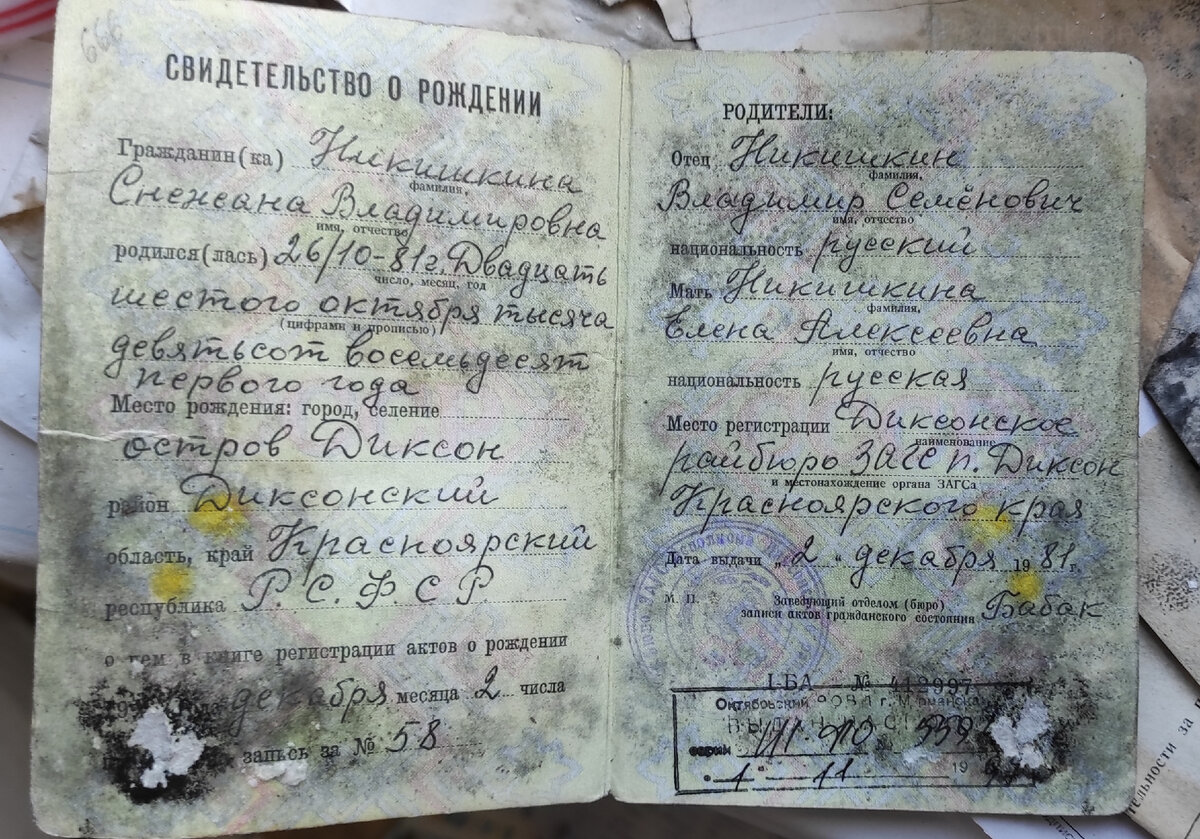 999
СВИДЕТЕЛЬСТВО О РОЖДЕНИИ
Гражданин(ка) Никишкина
фамилия,
Снежана Владимировна
имя, отчество
родился(лась) 26/10-81г. Двадцать
число, месяц, год
шестого октября тысяча
(цифрами и прописью)
девятьсот восемьдесят
первого года
Место рождения: город, селение
остров Диксон
район Диксонский
область, край Красноярский
республика Р.С.Ф.С Р
о чем в книге регистрации актов о рождении
декабря месяца 2 числа
запись за № 58
РОДИТЕЛИ:
Отец Никишкин
фамилия,
Владимир Семёнович
имя, отчество
национальность русский
Мать Никишкина
фамилия,
Елена Алексеевна
имя, отчество
национальность русская
Место регистрации Диксонское
наименование
райбюро ЗАГС п. Диксон
и местонахождение органа ЗАГСа
Красноярского края
Дата выдачи „2“ декабря 1981г.
М. П.
Заведующий отделом (бюро)
записи актов гражданского состояния Бабак
I-БА № 412997
Октябрьский г. Мурманска
серии
1 11 19
тельности за